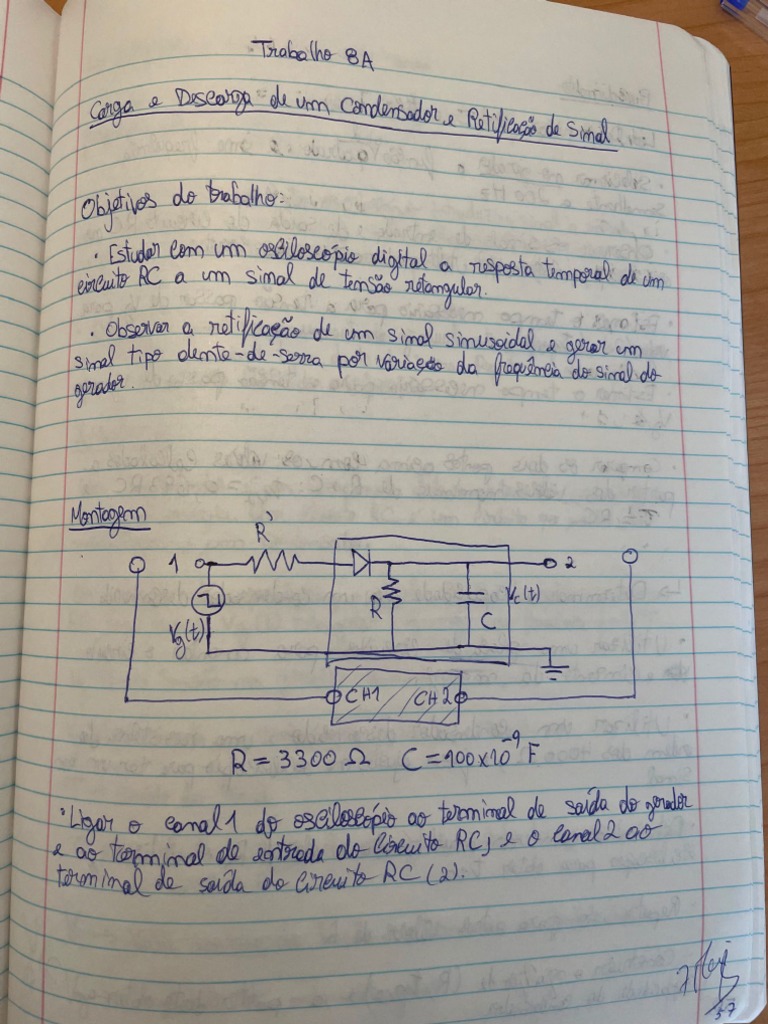 Trabalho 8A
Carga e Descarga de um Condensador e Retificação de Sinal
Objetivos do trabalho:
· Estudar com um osciloscópio digital a resposta temporal de um
circuito RC a um sinal de tensão retangular.
· Observar a retificação de um sinal sinusoidal e gerar um
sinal tipo dente-de-serra por variação da frequência do sinal do
gerador.
Montagem
R'
1
2
R
C
Vc(t)
Vg(t)
CH1
CH2
R = 3300 Ω C = 100x10⁻⁹ F
· Ligar o canal 1 do osciloscópio ao terminal de saída do gerador
e ao terminal de entrada do circuito RC, e o canal 2 ao
terminal de saída do circuito RC (2).